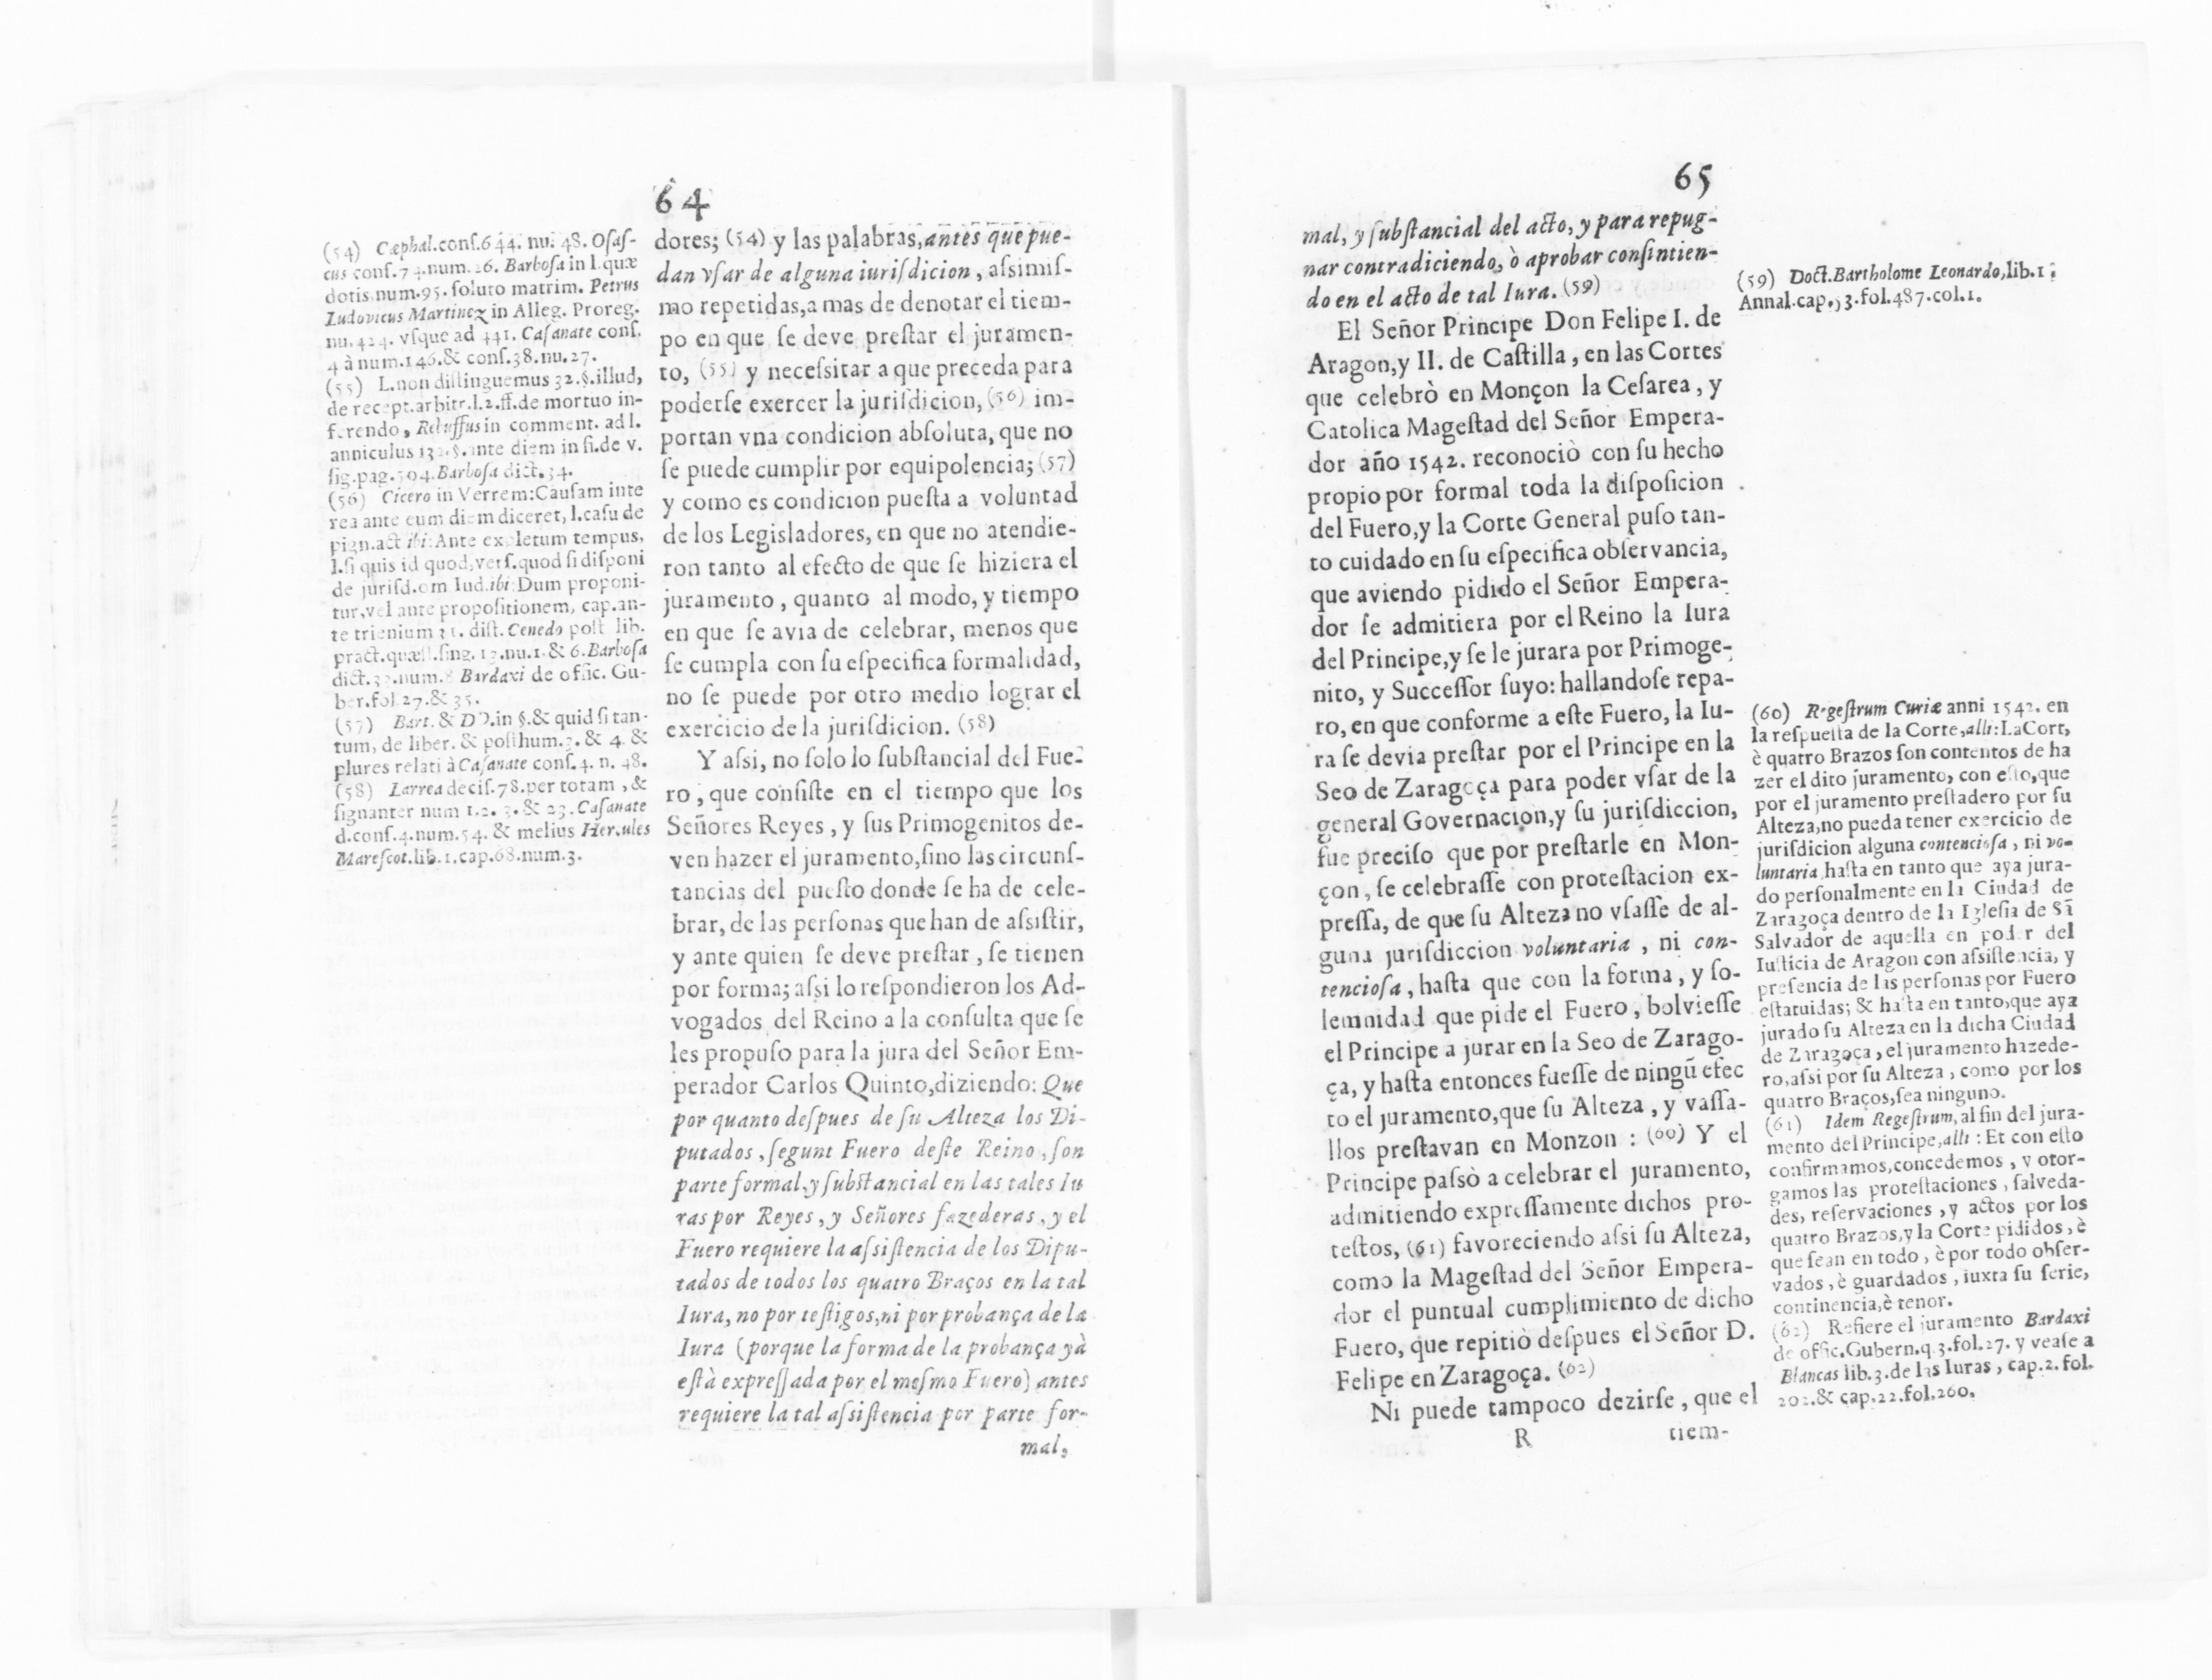 64
(54) Cæphal.conſ.644. nu. 48. Oſaſ-
cus conſ.74.num.26. Barboſa in l.quæ
dotis num.95. ſoluto matrim. Petrus
Ludovicus Martinez in Alleg. Proreg.
nu.424. vſque ad 441. Caſanate conſ.
4 à num.146.& conſ.38.nu.27.
(55) L.non diſtinguemus 32.§.illud,
de recept.arbitr.l.2.ff.de mortuo in-
ferendo, Rebuffus in comment. ad l.
anniculus 132.§.ante diem in fi.de v.
ſig.pag.594.Barboſa dict.34.
(56) Cicero in Verrem:Cauſam inte
rea ante eum diem diceret, l.caſu de
pign.act ibi:Ante expletum tempus,
l.ſi quis id quod,verſ.quod ſi diſponi
de juriſd.om Iud.ibi:Dum proponi-
tur,vel ante propoſitionem, cap.an-
te trienium 31. diſt. Cenedo poſt lib.
pract.quæſt.ſing. 17.nu.1.& 6.Barboſa
dict. num.8 Bardaxi de offic. Gu-
ber.fol.27.& 35.
(57) Bart. & DD.in §.& quid ſi tan-
tum, de liber. & poſthum.3. & 4. &
plures relati à Caſanate conſ.4. n. 48.
(58) Larrea deciſ.78.per totam , &
ſignanter num 1.2. 3.& 23.Caſanate
d.conſ.4.num.54. & melius Hercules
Mareſcot.lib.1.cap.68.num.3.
dores; (54) y las palabras,antes que pue-
dan vſar de alguna iuriſdicion, aſsimiſ-
mo repetidas,a mas de denotar el tiem-
po en que ſe deve preſtar el juramen-
to, (55) y neceſsitar a que preceda para
poderſe exercer la juriſdicion, (56) im-
portan vna condicion abſoluta, que no
ſe puede cumplir por equipolencia; (57)
y como es condicion pueſta a voluntad
de los Legisladores, en que no atendie-
ron tanto al efecto de que ſe hiziera el
juramento , quanto al modo, y tiempo
en que ſe avia de celebrar, menos que
ſe cumpla con ſu eſpecifica formalidad,
no ſe puede por otro medio lograr el
exercicio de la juriſdicion. (58)
Y aſsi, no ſolo lo ſubſtancial del Fue-
ro , que conſiſte en el tiempo que los
Señores Reyes , y ſus Primogenitos de-
ven hazer el juramento,ſino las circunſ-
tancias del pueſto donde ſe ha de cele-
brar, de las perſonas que han de aſsiſtir,
y ante quien ſe deve preſtar , ſe tienen
por forma; aſsi lo reſpondieron los Ad-
vogados del Reino a la conſulta que ſe
les propuſo para la jura del Señor Em-
perador Carlos Quinto,diziendo: Que
por quanto deſpues de ſu Alteza los Di-
putados , ſegunt Fuero deſte Reino , ſon
parte formal,y ſubſtancial en las tales Iu
ras por Reyes , y Señores fazederas , y el
Fuero requiere la aſsiſtencia de los Dipu-
tados de todos los quatro Braços en la tal
Iura, no por teſtigos,ni por probança de la
Iura (porque la forma de la probança yà
eſtà expreſſada por el meſmo Fuero) antes
requiere la tal aſsiſtencia por parte for-
mal,
65
mal, y ſubſtancial del acto, y para repug-
nar contradiciendo, ò aprobar conſintien-
do en el acto de tal Iura. (59)
El Señor Principe Don Felipe I. de
Aragon,y II. de Caſtilla , en las Cortes
que celebrò en Monçon la Ceſarea , y
Catolica Mageſtad del Señor Empera-
dor año 1542. reconociò con ſu hecho
propio por formal toda la diſpoſicion
del Fuero,y la Corte General puſo tan-
to cuidado en ſu eſpecifica obſervancia,
que aviendo pidido el Señor Empera-
dor ſe admitiera por el Reino la Iura
del Principe,y ſe le jurara por Primoge-
nito, y Succeſſor ſuyo: hallandoſe repa-
ro, en que conforme a eſte Fuero, la Iu-
ra ſe devia preſtar por el Principe en la
Seo de Zaragoça para poder vſar de la
general Governacion,y ſu juriſdiccion,
fue preciſo que por preſtarle en Mon-
çon , ſe celebraſſe con proteſtacion ex-
preſſa, de que ſu Alteza no vſaſſe de al-
guna juriſdiccion voluntaria , ni con-
tencioſa , haſta que con la forma , y ſo-
lemnidad que pide el Fuero , bolvieſſe
el Principe a jurar en la Seo de Zarago-
ça, y haſta entonces fueſſe de ningũ efec
to el juramento,que ſu Alteza , y vaſſa-
llos preſtavan en Monzon : (60) Y el
Principe paſsò a celebrar el juramento,
admitiendo expreſſamente dichos pro-
teſtos, (61) favoreciendo aſsi ſu Alteza,
como la Mageſtad del Señor Empera-
dor el puntual cumplimiento de dicho
Fuero, que repitiò deſpues el Señor D.
Felipe en Zaragoça. (62)
Ni puede tampoco dezirſe , que el
R tiem-
(59) Doct.Bartholome Leonardo,lib.1
Annal.cap.53.fol.487.col.1.
(60) Regeſtrum Curiæ anni 1542. en
la reſpueſta de la Corte,alli:La Cort,
è quatro Brazos ſon contentos de ha
zer el dito juramento, con eſto,que
por el juramento preſtadero por ſu
Alteza,no pueda tener exercicio de
juriſdicion alguna contencioſa , ni vo-
luntaria haſta en tanto que aya jura-
do perſonalmente en la Ciudad de
Zaragoça dentro de la Igleſia de Sã
Salvador de aquella en poder del
Iuſticia de Aragon con aſsiſtencia, y
preſencia de las perſonas por Fuero
eſtatuidas; & haſta en tanto,que aya
jurado ſu Alteza en la dicha Ciudad
de Zaragoça , el juramento hazede-
ro,aſsi por ſu Alteza , como por los
quatro Braços,ſea ninguno.
(61) Idem Regeſtrum, al fin del jura-
mento del Principe,alli : Et con eſto
confirmamos,concedemos , y otor-
gamos las proteſtaciones , ſalveda-
des, reſervaciones , y actos por los
quatro Brazos,y la Corte pididos , è
que ſean en todo , è por todo obſer-
vados , è guardados , iuxta ſu ſerie,
continencia,è tenor.
(62) Refiere el juramento Bardaxi
de offic.Gubern.q.3.fol.27. y veaſe a
Blancas lib.3.de las Iuras , cap.2. fol.
202.& cap.22.fol.260.